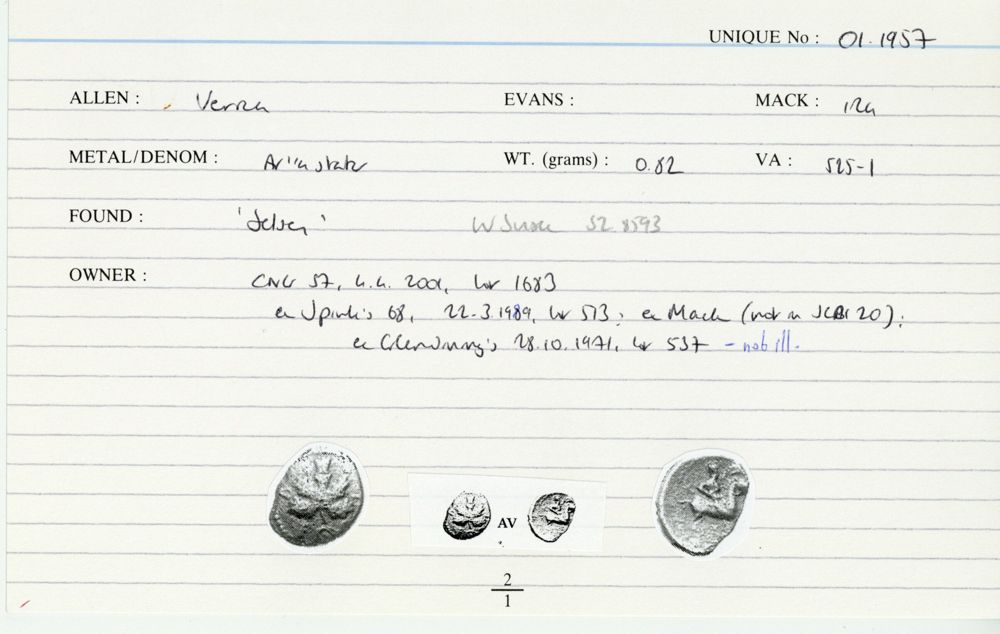 UNIQUE No : 01.1957
ALLEN : Verica EVANS : MACK :
METAL/DENOM : stater WT. (grams) : 0.82 VA : 525-1
FOUND : 'Selsey' W Sussex SZ 8593
OWNER : CNG 57, 4.4. 2001, lot 1683
ex Spink's 68, 22-3.1989, lot 513; ex Mack (not in SCBI 20);
ex Glendining's 28.10.1971, lot 537 - not ill.
AV
2
1